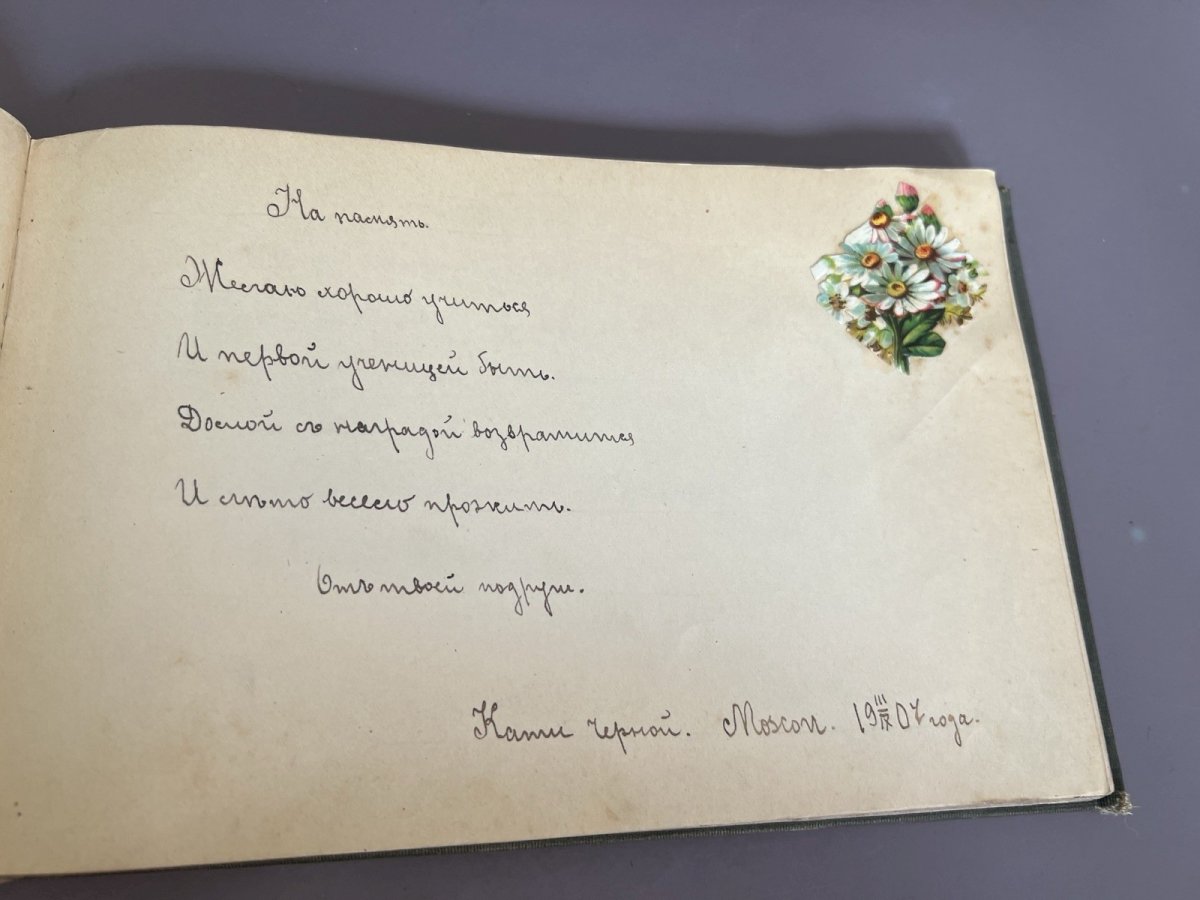 На память.
Желаю хорошо учиться
И первой ученицей быть.
Домой съ наградой возвратится
И лѣто весело прожить.
Отъ твоей подруги.
Кати Черной. Moscou. 19 III/IX 07 года.